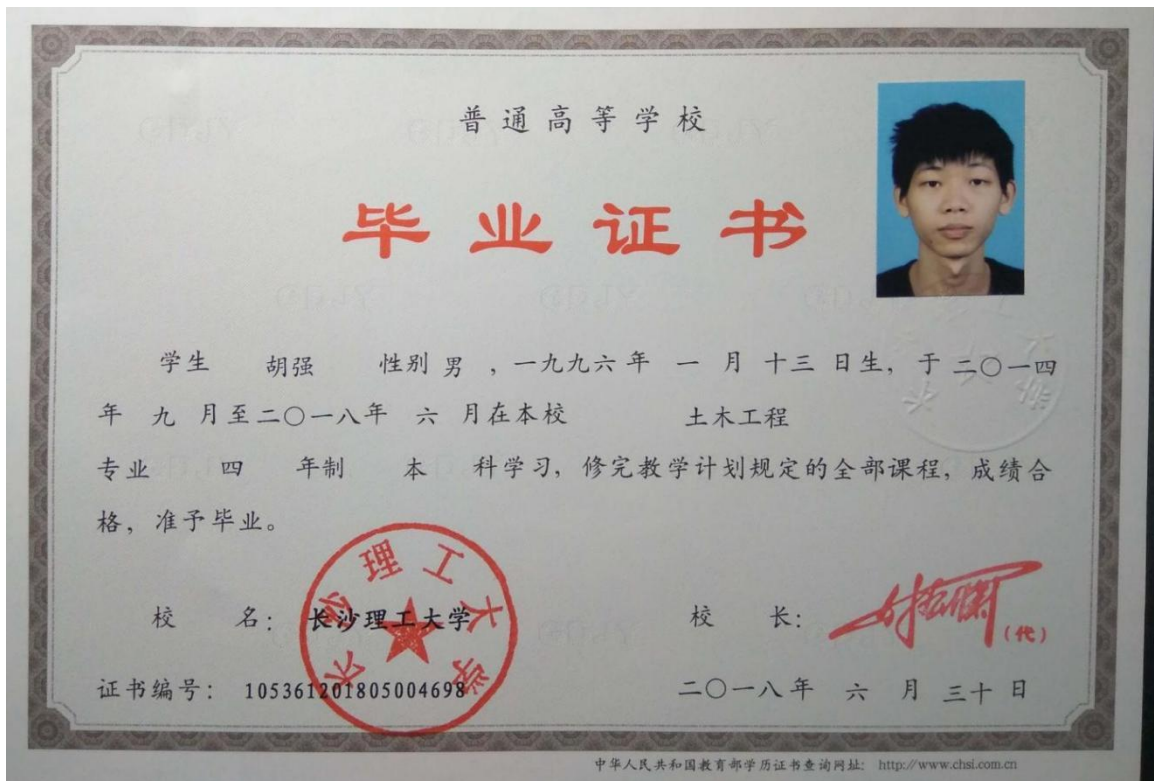 普通高等学校
毕业证书
学生 胡强 性别 男 ，一九九六年 一 月 十三 日生，于 二〇一四
年 九 月至二〇一八年 六 月在本校 土木工程
专业 四 年制 本 科学习，修完教学计划规定的全部课程，成绩合
格，准予毕业。
校 名： 长沙理工大学 校 长： （代）
长沙理工大学
证书编号： 105361201805004698 二〇一八年 六 月 三十 日
中华人民共和国教育部学历证书查询网址: http://www.chsi.com.cn